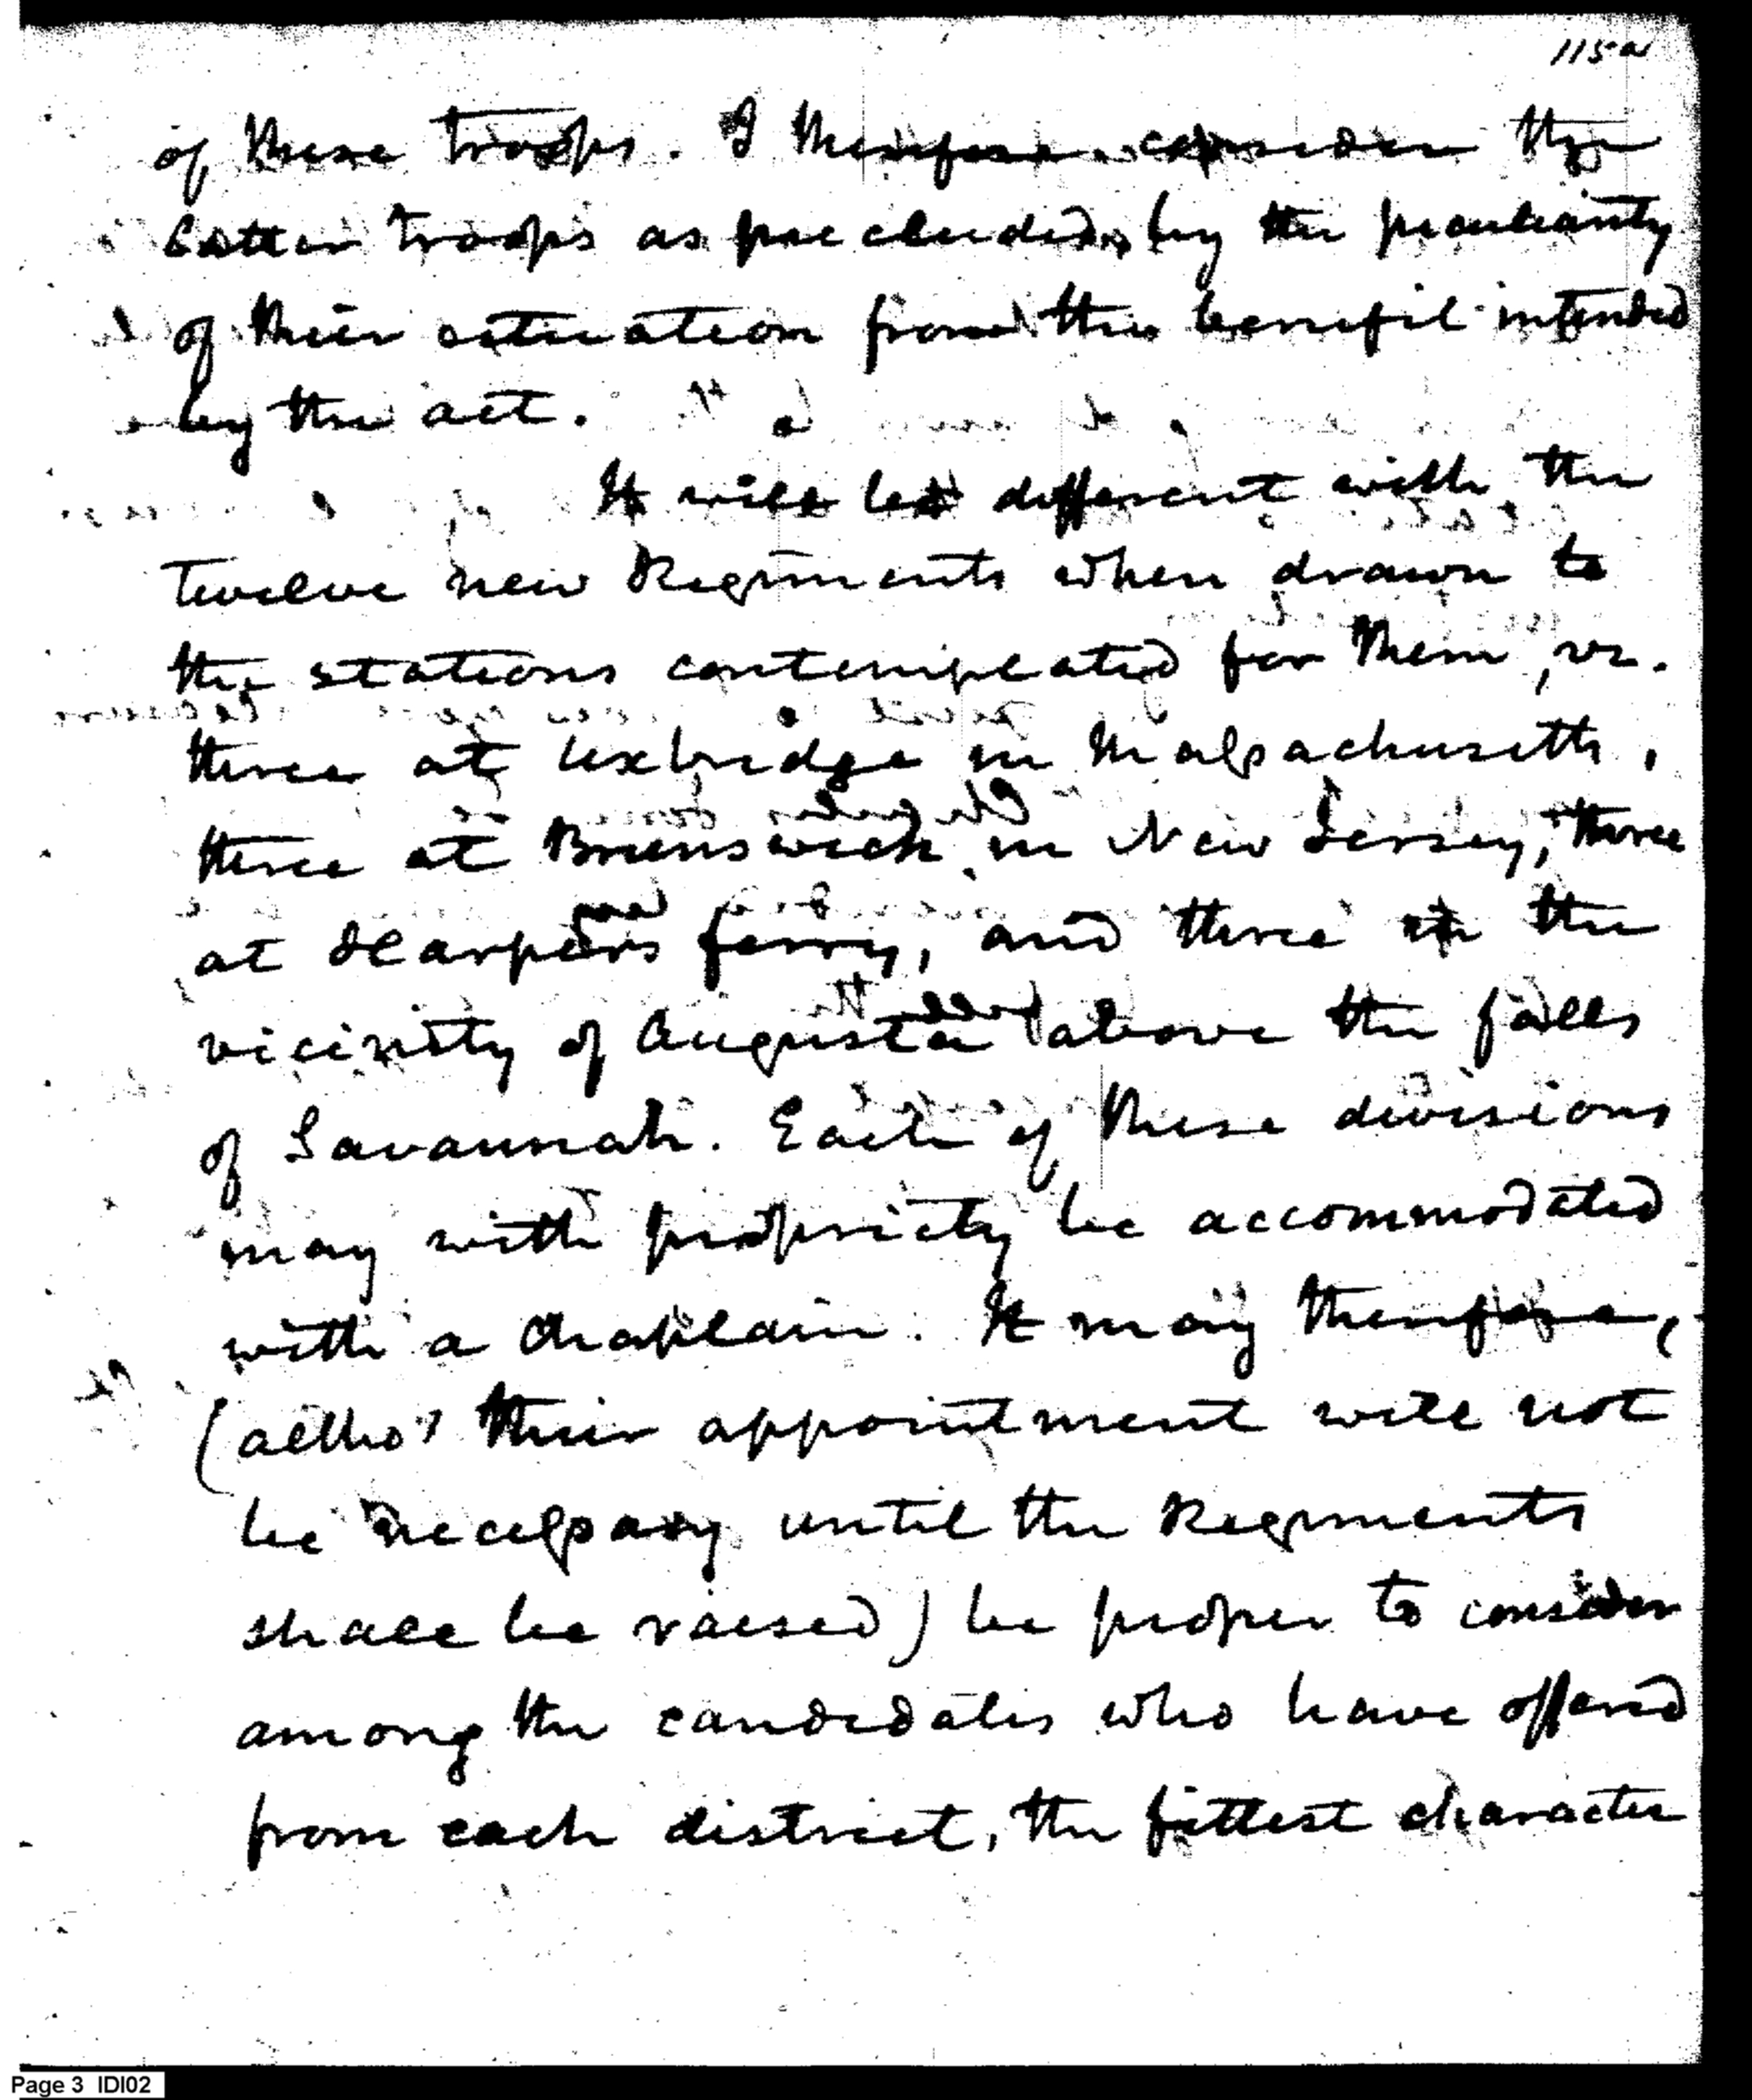 115a
of these troops. I therefore consider the
latter troops as precluded, by the peculiarity
of their situation from the benefit intended
by the act.
It will be different with the
twelve new Regiments when drawn to
the stations contemplated for them, vz.
three at Uxbridge in Massachusetts,
three at Brunswick in New Jersey, three
at Harpers ferry, and three in the
vicinity of Augusta above the falls
of Savannah. Each of these divisions
may with propriety be accommodated
with a Chaplain. It may therefore,
(altho' their appointment will not
be necessary until the Regiments
shall be raised) be proper to consider
among the candidates who have offered
from each district, the fittest character
Page 3 IDI02